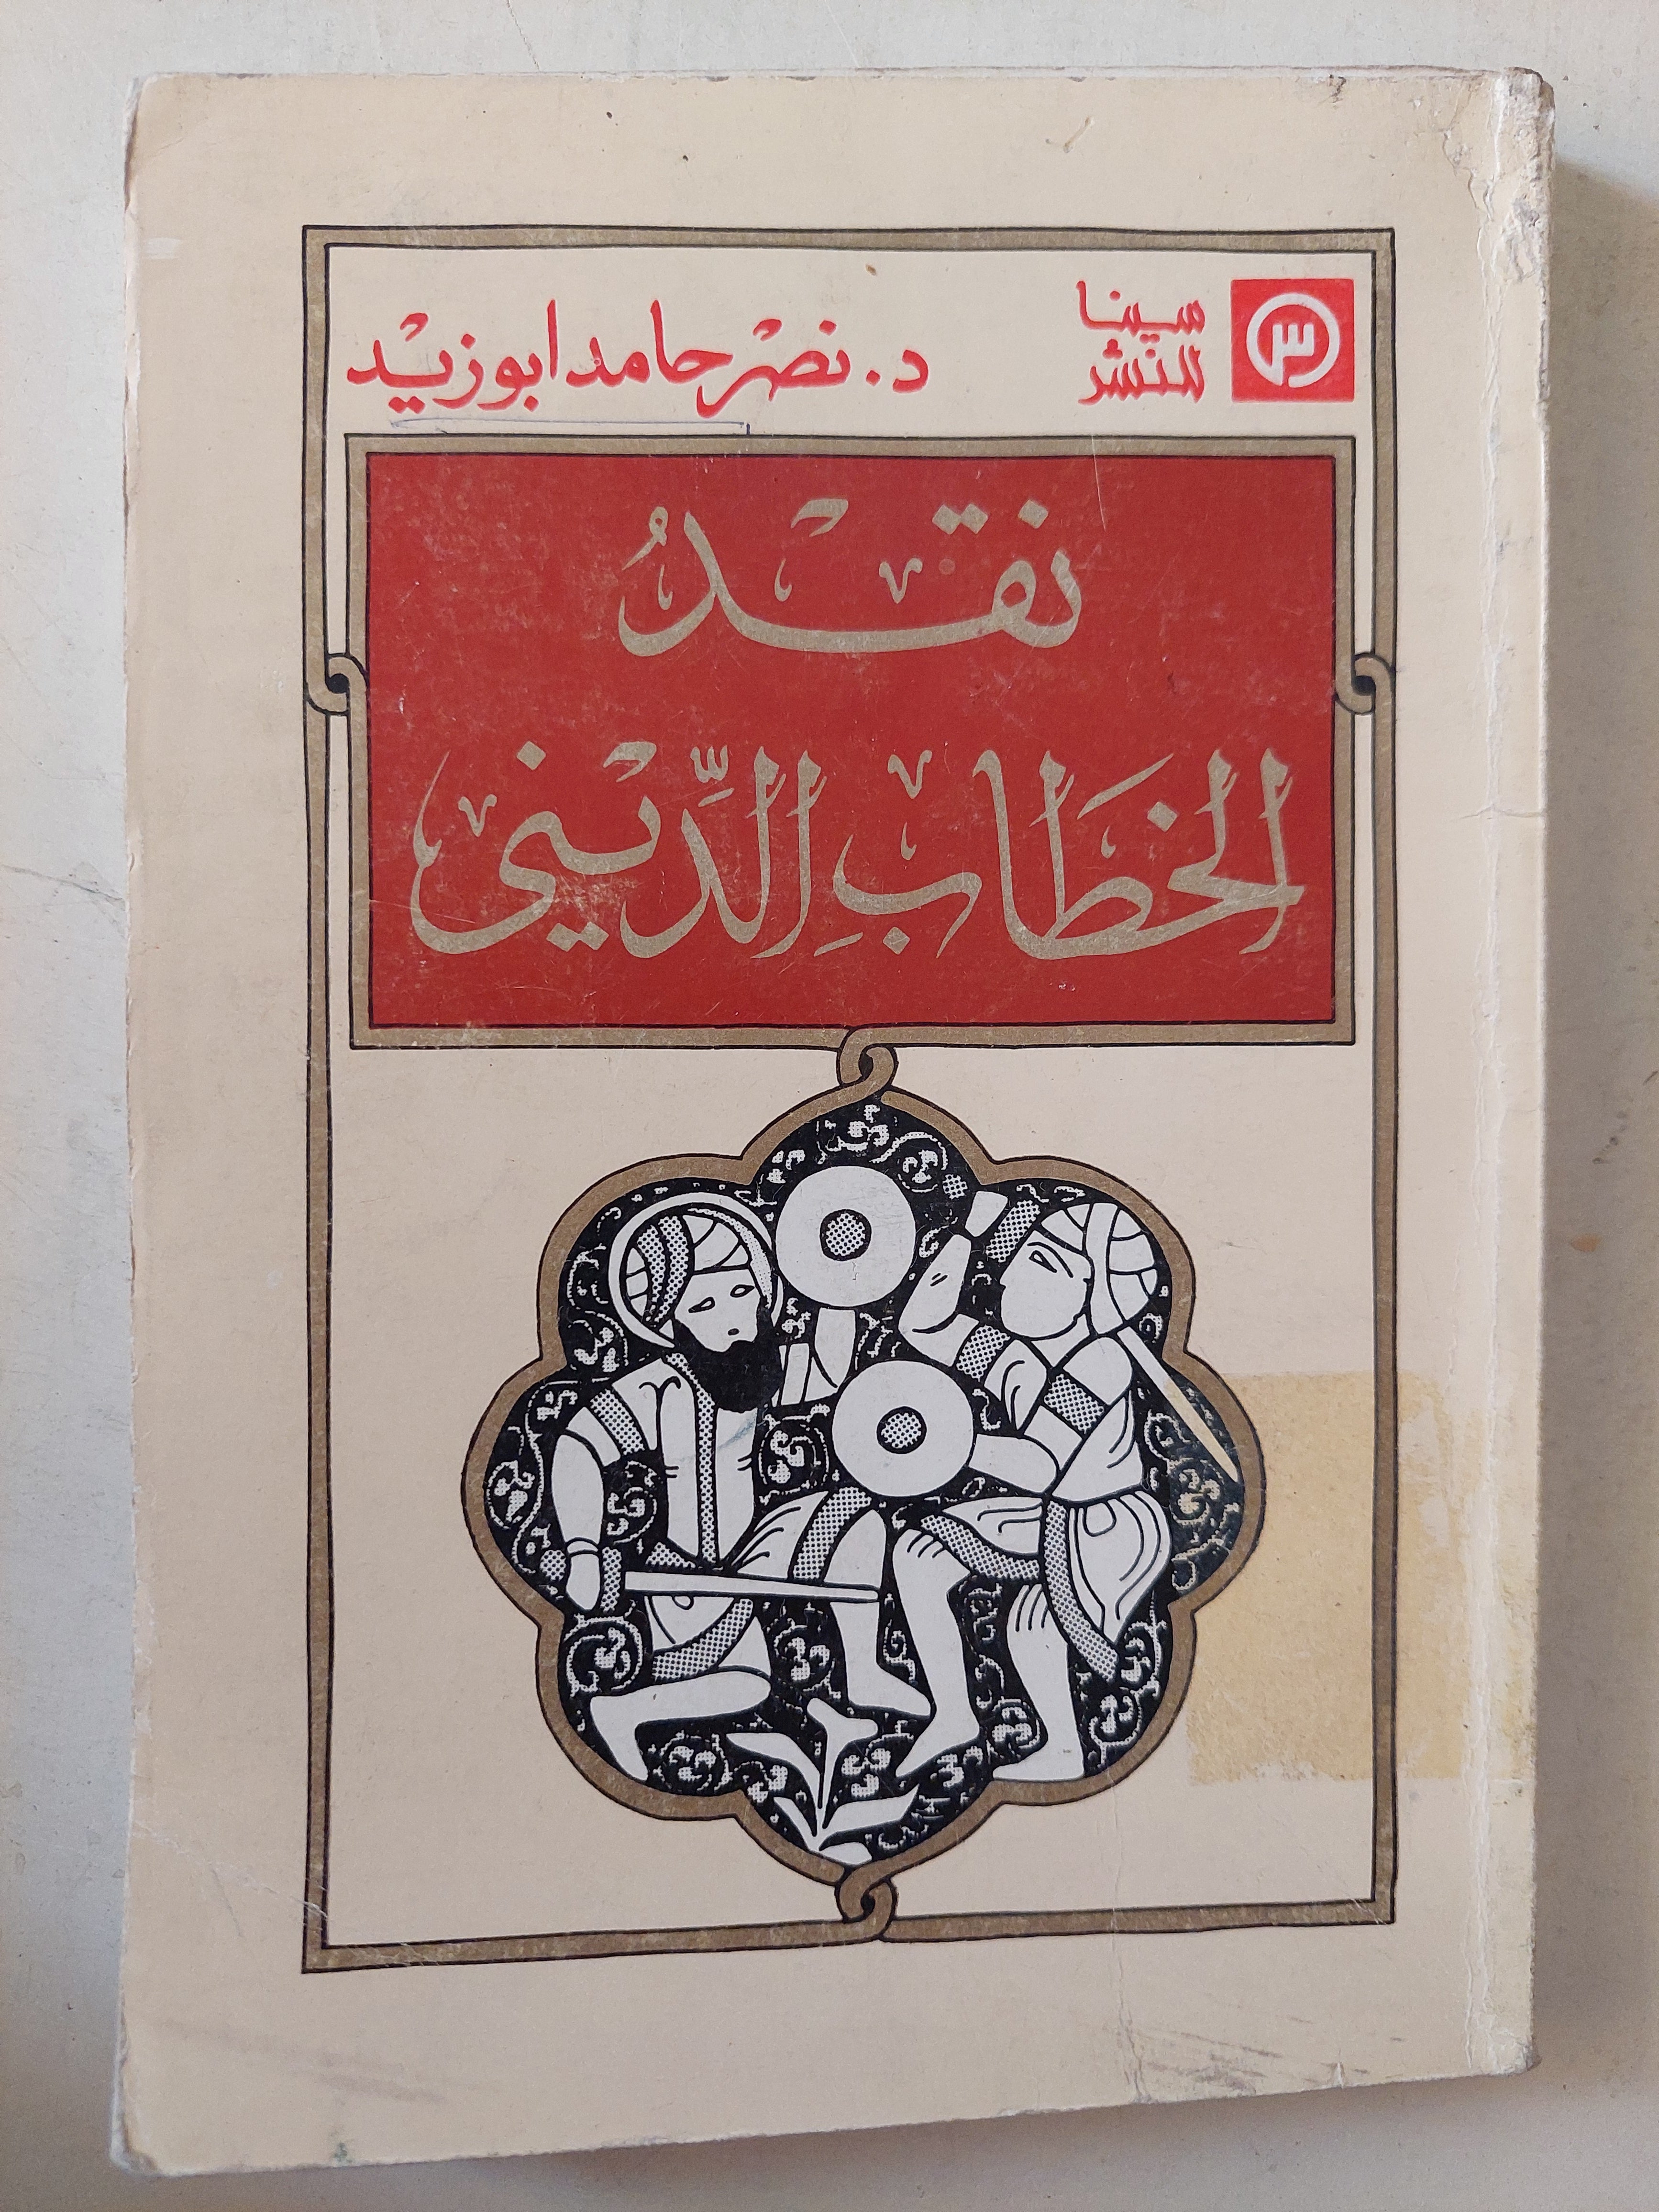 سينا
للنشر
د. نصْر حامد ابوزيْد
نقْدُ
الخطَاب الدِّيْنى